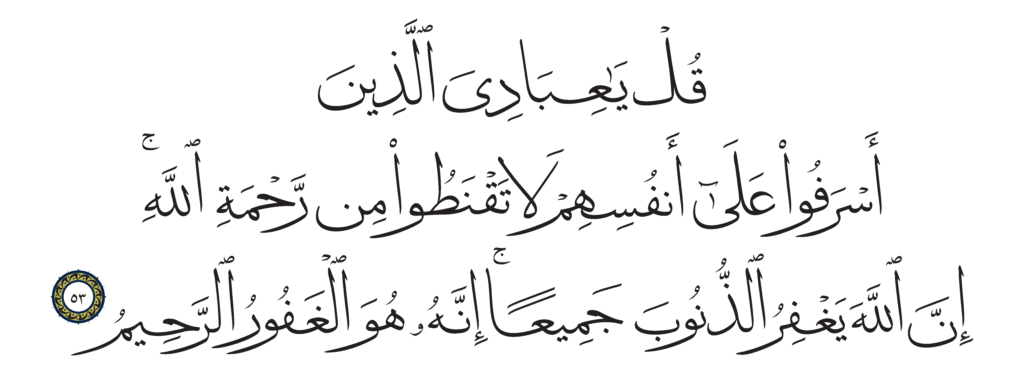 قُلْ يَـٰعِبَادِىَ ٱلَّذِينَ
أَسْرَفُوا۟ عَلَىٰٓ أَنفُسِهِمْ لَا تَقْنَطُوا۟ مِن رَّحْمَةِ ٱللَّهِ ۚ
إِنَّ ٱللَّهَ يَغْفِرُ ٱلذُّنُوبَ جَمِيعًا ۚ إِنَّهُۥ هُوَ ٱلْغَفُورُ ٱلرَّحِيمُ ٥٣